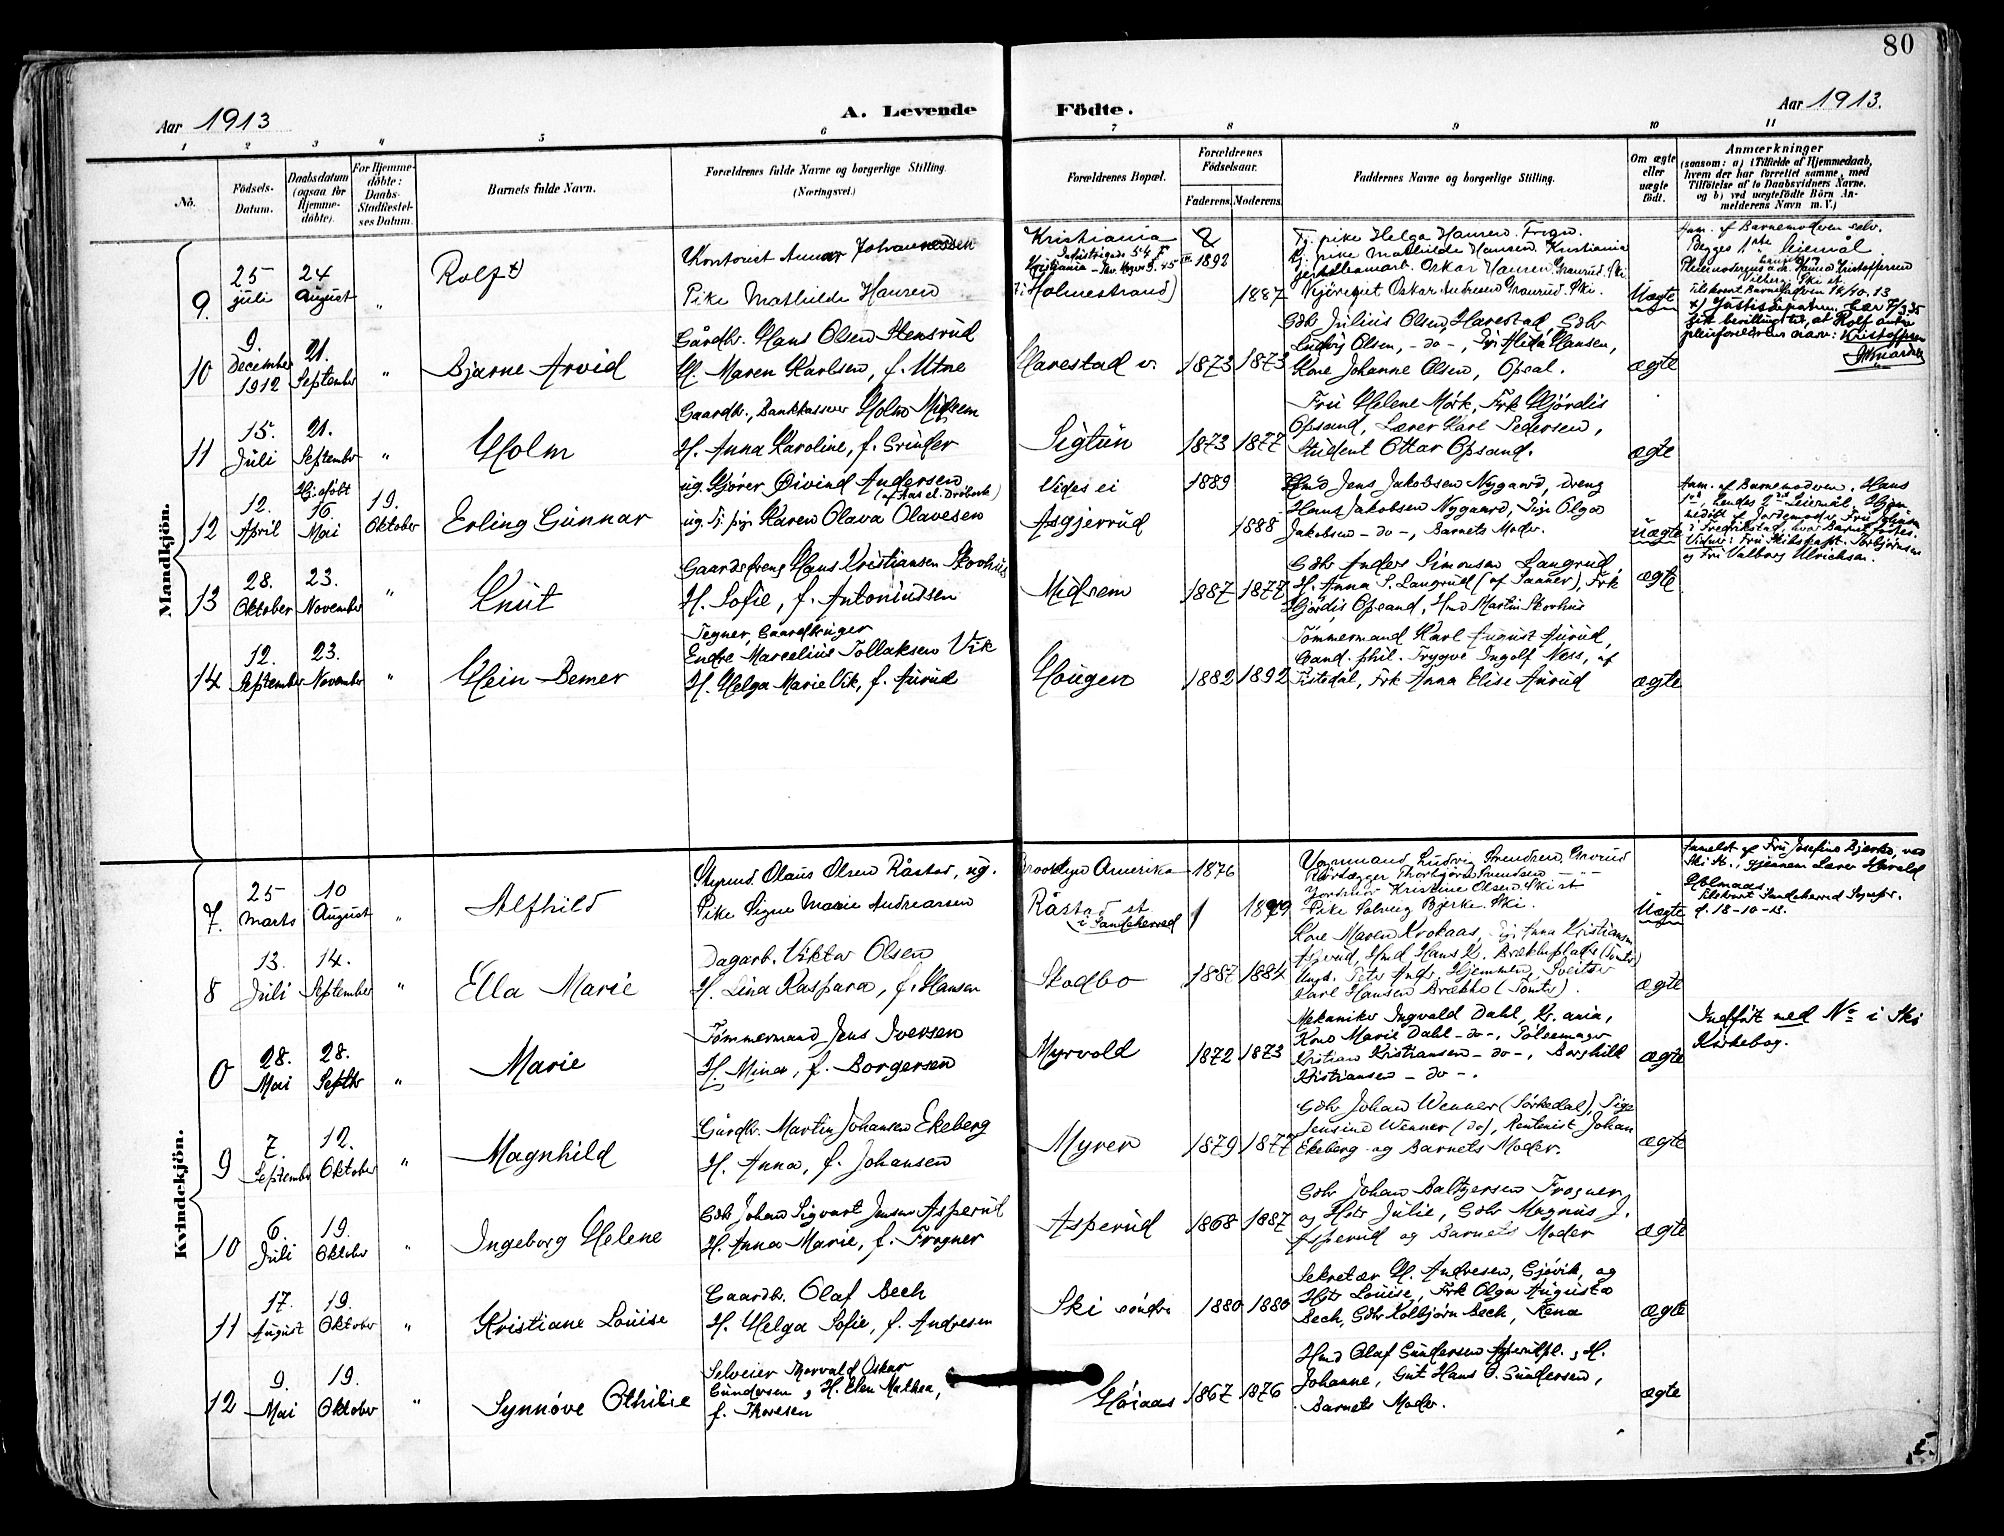 80
Aar 1913
A. Levende Födte.
Aar 1913.
1 2 3 4 5 6 7 8 9 10 11
No.
Födsels-Datum.
Daabsdatum (ogsaa for Hjemme-döbte).
For Hjemme-döbte: Daabs-Stadfæstel-ses Datum.
Barnets fulde Navn.
Forældrenes fulde Navne og borgerlige Stilling.
(Næringsvei.)
Forældrenes Bopæl.
Forældrenes Födselsaar.
Faderens. Moderens.
Faddernes Navne og borgerlige Stilling.
Om ægte eller uægte födt.
Anmærkninger
(saasom: a) i Tilfælde af Hjemmedaab, hvem der har forrettet samme, med Tilföielse af to Daabsvidners Navne, og b) ved uægtefödte Börn Anmelderens Navn m. V.)
Mandkjön.
9. 25 juli
24 August
"
Rolf x)
Kontorist Annar Johannessen
Pike Mathilde Hansen
Kristiania
Holmestrand)
1892
1887
Tj. pike Helga Hansen. Frogn.
Tj. pike Mathilde Hansen. Kristiania
Oskar Hansen. Graurud. Ski
Oskar Andresen Graurud. Ski.
Uægte
Anm. af Barnemoderen selv.
Begges 1ste Leiermål
10 9. December 1912
21. September
"
Bjarne Arvid
Gårdbr. Hans Olsen Stensrud
H. Maren Karlsen, f. Utne
Harestad v.
1873 1873
Gdbr Julius Olsen Harestad, Gdbr
Ludvig Olsen, - do -, Pi Alida Hansen,
Kone Johanne Olsen, Opsal.
ægte
11 15. Juli
21. September
"
Holm
Gaardbr., Bankkasserer Holm Midsem
H. Anna Karoline, f. Grinder
Sigtun
1873 1877
Fru Helene Mørk, Frk Hjördis
Opsand, Lærer Karl Pedersen,
Student Ottar Opsand.
ægte
12 12. April
Hj. døbt 16. Mai
19. Oktober
Erling Gunnar
ug. Kjører Øivind Andersen
ug. Tj. pige Karen Olava Olavesen
Vides ei
Asgjerrud
1889
1888
Hmd Jens Jakobsen Nygaard, Dreng
Hans Jakobsen Nygaard, Pige Olga
Jakobsen - do -, Barnets Moder.
uægte
Anm. af Barnemoderen. Hans
i Fredrikstad, hvor Barnet fødtes.
og Fru Valborg Ulrichsen.
13 28. Oktober
23. November
"
Knut
Gaardsdreng Hans Kristiansen Skovhus
H. Sofie, f. Antoniussen
Midsem
1887 1877
Gdbr Anders Simonsen Langrud,
H. Anna P. Langrud (af Sanner), Frk
Hjørdis Opsand, Hmd Martin Skovhus
ægte
14 12. September
23. November
"
Hein-Bemer
Tegner, Gaardbruger
Endre Marcelius Tollaksen Vik
H. Helga Marie Vik, f. Aurud
Haugen
1882 1892
Tömmermand Karl August Aurud,
Cand. phil. Trygve Ingolf Ness, af
Tistedal, Frk Anna Elise Aurud
ægte
Kvindekjön.
7. 25 Marts
10 August
"
Alfhild
Styrmd. Olaus Olsen Råstad, ug.
Pike Signe Marie Andreassen
Brooklyn Amerika
Råstad et
i Sandeherred
1876
Kristine Olsen. Ski st
Pike Solveig Bjerke. Ski.
Uægte
Anmeldt af Fru Josefine Bjerke, ved
Ski st., gjennem Lærer Harald
Holmaas.
d. 18-10-13.
8 13. Juli
14. September
"
Ella Marie
Dagarb. Viktor Olsen
H. Lina Kaspara, f. Hansen
Skodbo
1887 1884
Kone Maren Krokaas, Pi Anna Kristiansen
Asperud, Hmd Hans K.
Karl Hansen Brække (Tomter).
ægte
0 28. Mai
28. Septbr
"
Marie
Tømmermand Jens Iversen
H. Mina, f. Borgersen
Myrvold
1872 1873
Mekaniker Ingvald Dahl, Kr.ania,
Kone Marie Dahl - do -, Pølsemager
Kristian Kristiansen - do -, Borghild
Kristiansen - do -.
ægte
Indført med No i Ski
Kirkebog.
9 7. September
12. Oktober
"
Magnhild
Gårdbr. Martin Johansen Ekeberg
H. Anna, f. Johansen
Myrer
1879 1877
Gdbr Johan Wenner (Sørkedal), Pige
Jensine Wenner (do), Rentenist Johan
Ekeberg og Barnets Moder.
ægte
10 6. Juli
19. Oktober
"
Ingeborg Helene
Gdbr Johan Sigvart Jensen Asperud
H. Anna Marie, f. Frogner
Asperud
1868 1887
Gdbr Johan Baltzersen Frogner
og Hst Julie, Gdbr Magnus J.
Asperud og Barnets Moder
ægte
11 17. August
19. Oktober
"
Kristiane Louise
Gaardbr. Olaf Bech
H. Helga Sofie, f. Andresen
Ski söndre
1880 1880
Sekretær H. Andresen, Gjøvik, og
Hst Louise, Frk Olga Augusta
Bech, Gdbr Kolbjørn Bech, Rena
ægte
12 9. Mai
19. Oktober
"
Synnöve Othilie
Selveier Thorvald Oskar
Gundersen, H. Elen Mathea,
f. Thoresen
Høiaas
1867 1876
Hmd Olaf Gundersen Asperudpl., H.
Johanne, Gut Hans O. Gundersen,
Barnets Moder.
ægte